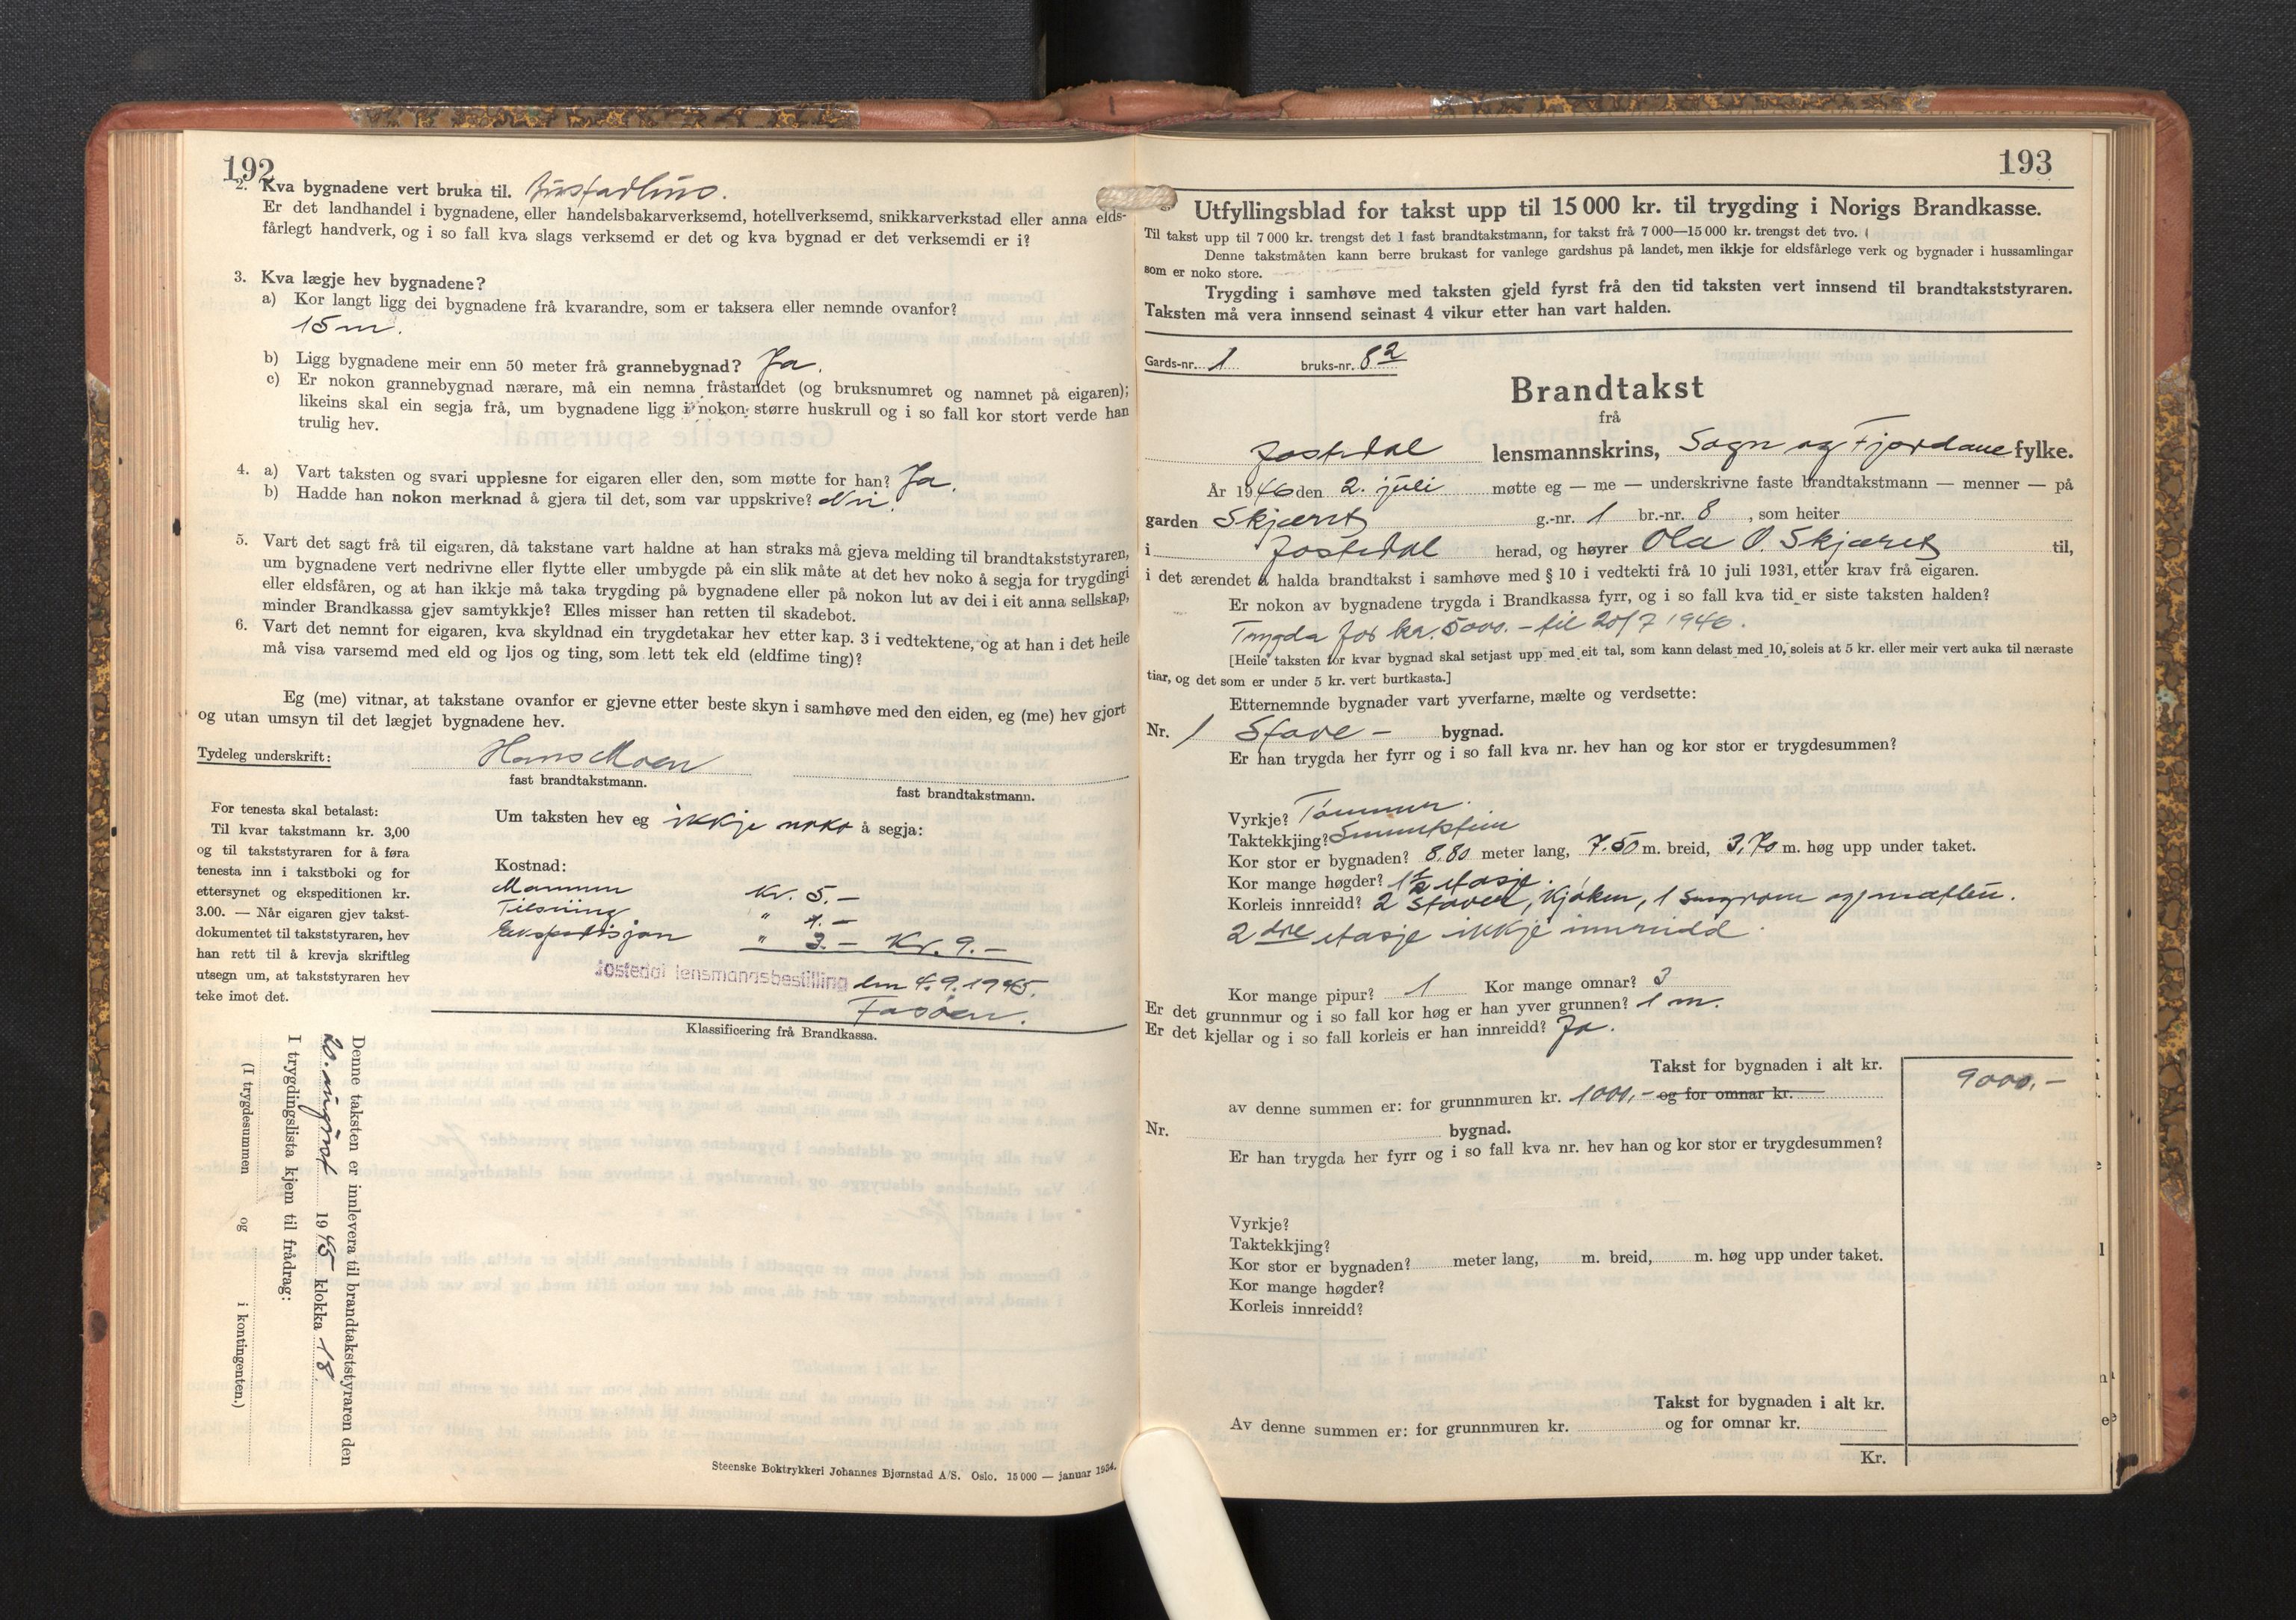 192
2. Kva bygnadene vert bruka til. Bustadhus.
Er det landhandel i bygnadene, eller handelsbakarverksemd, hotellverksemd, snikkarverkstad eller anna elds-
fårlegt handverk, og i so fall kva slags verksemd er det og kva bygnad er det verksemdi er i?
3. Kva lægje hev bygnadene?
a) Kor langt ligg dei bygnadene frå kvarandre, som er taksera eller nemnde ovanfor?
15 m.
b) Ligg bygnadene meir enn 50 meter frå grannebygnad? Ja.
c) Er nokon grannebygnad nærare, må ein nemna fråstandet (og bruksnumret og namnet på eigaren);
likeins skal ein segja frå, um bygnadene ligg i nokon større huskrull og i so fall kor stort verde han
trulig hev.
4. a) Vart taksten og svari upplesne for eigaren eller den, som møtte for han? Ja.
b) Hadde han nokon merknad å gjera til det, som var uppskrive? Nei.
5. Vart det sagt frå til eigaren, då takstane vart haldne at han straks må gjeva melding til brandtakststyraren,
um bygnadene vert nedrivne eller flytte eller umbygde på ein slik måte at det hev noko å segja for trygdingi
eller eldsfåren, og at han ikkje må taka trygding på bygnadene eller på nokon lut av dei i eit anna sellskap,
minder Brandkassa gjev samtykkje? Elles misser han retten til skadebot.
6. Vart det nemnt for eigaren, kva skyldnad ein trygdetakar hev etter kap. 3 i vedtektene, og at han i det heile
må visa varsemd med eld og ljos og ting, som lett tek eld (eldfime ting)?
Eg (me) vitnar, at takstane ovanfor er gjevne etter beste skyn i samhøve med den eiden, eg (me) hev gjort
og utan umsyn til det lægjet bygnadene hev.
Tydeleg underskrift: Hans Moen
fast brandtakstmann. fast brandtakstmann.
For tenesta skal betalast:
Til kvar takstmann kr. 3,00
og til takststyraren for å føra
tenesta inn i takstboki og for
ettersynet og ekspeditionen kr.
3.00. — Når eigaren gjev takst-
dokumentet til takststyraren, hev
han rett til å krevja skriftleg
utsegn um, at takststyraren hev
teke imot det.
Um taksten hev eg ikkje noko å segja:
Kostnad:
Mannen Kr. 5.—
Tilsiing " 1.—
Ekspedisjon " 3.— Kr. 9.—
Jostedal lensmandsbestilling den 4.9.1945.
Klassificering frå Brandkassa.
Denne taksten er innlevera til brandtakststyraren den
20. august 1945 klokka 18.
I trygdingslista kjem til frådrag:
(I trygdesummen og i kontingenten.)
Steenske Boktrykkeri Johannes Bjørnstad A/S. Oslo. 15 000 — januar 1934.
193
Utfyllingsblad for takst upp til 15 000 kr. til trygding i Norigs Brandkasse.
Til takst upp til 7 000 kr. trengst det 1 fast brandtakstmann, for takst frå 7 000—15 000 kr. trengst det tvo.
Denne takstmåten kann berre brukast for vanlege gardshus på landet, men ikkje for eldsfårlege verk og bygnader i hussamlingar
som er noko store.
Trygding i samhøve med taksten gjeld fyrst frå den tid taksten vert innsend til brandtakststyraren.
Taksten må vera innsend seinast 4 vikur etter han vart halden.
Gards-nr. 1 bruks-nr. 8 2
Brandtakst
frå
Jostedal lensmannskrins, Sogn og Fjordane fylke.
År 1946 den 2. juli møtte eg — me — underskrivne faste brandtakstmann — menner — på
garden Skjæret g.-nr. 1 br.-nr. 8 , som heiter
i Jostedal herad, og høyrer Ola O. Skjæret til,
i det ærendet å halda brandtakst i samhøve med § 10 i vedtekti frå 10 juli 1931, etter krav frå eigaren.
Er nokon av bygnadene trygda i Brandkassa fyrr, og i so fall kva tid er siste taksten halden?
Trygda for kr. 5000.— til 20/7 1946.
[Heile taksten for kvar bygnad skal setjast upp med eit tal, som kann delast med 10, soleis at 5 kr. eller meir vert auka til næraste
tiar, og det som er under 5 kr. vert burtkasta.]
Etternemnde bygnader vart yverfarne, mælte og verdsette:
Nr. 1 Stove- bygnad.
Er han trygda her fyrr og i so fall kva nr. hev han og kor stor er trygdesummen?
Vyrkje? Tømmer.
Taktekkjing?
Kor stor er bygnaden? 8.80 meter lang, 7.50 m. breid, 3,70 m. høg upp under taket.
Kor mange høgder? 1½ etasje.
Korleis innreidd? 2 stover, kjøken, 1 sengrom
2dre etasje ikkje innreidd.
Kor mange pipur? 1 Kor mange omnar? 3
Er det grunnmur og i so fall kor høg er han yver grunnen? 1 m.
Er det kjellar og i so fall korleis er han innreidd? Ja.
Takst for bygnaden i alt kr. 9000.—
av denne summen er: for grunnmuren kr. 1000.— og for omnar kr.
Nr. bygnad.
Er han trygda her fyrr og i so fall kva nr. hev han og kor stor er trygdesummen?
Vyrkje?
Taktekkjing?
Kor stor er bygnaden? meter lang, m. breid, m. høg upp under taket.
Kor mange høgder?
Korleis innreidd?
Takst for bygnaden i alt kr.
Av denne summen er: for grunnmuren kr. og for omnar kr.
Kr.